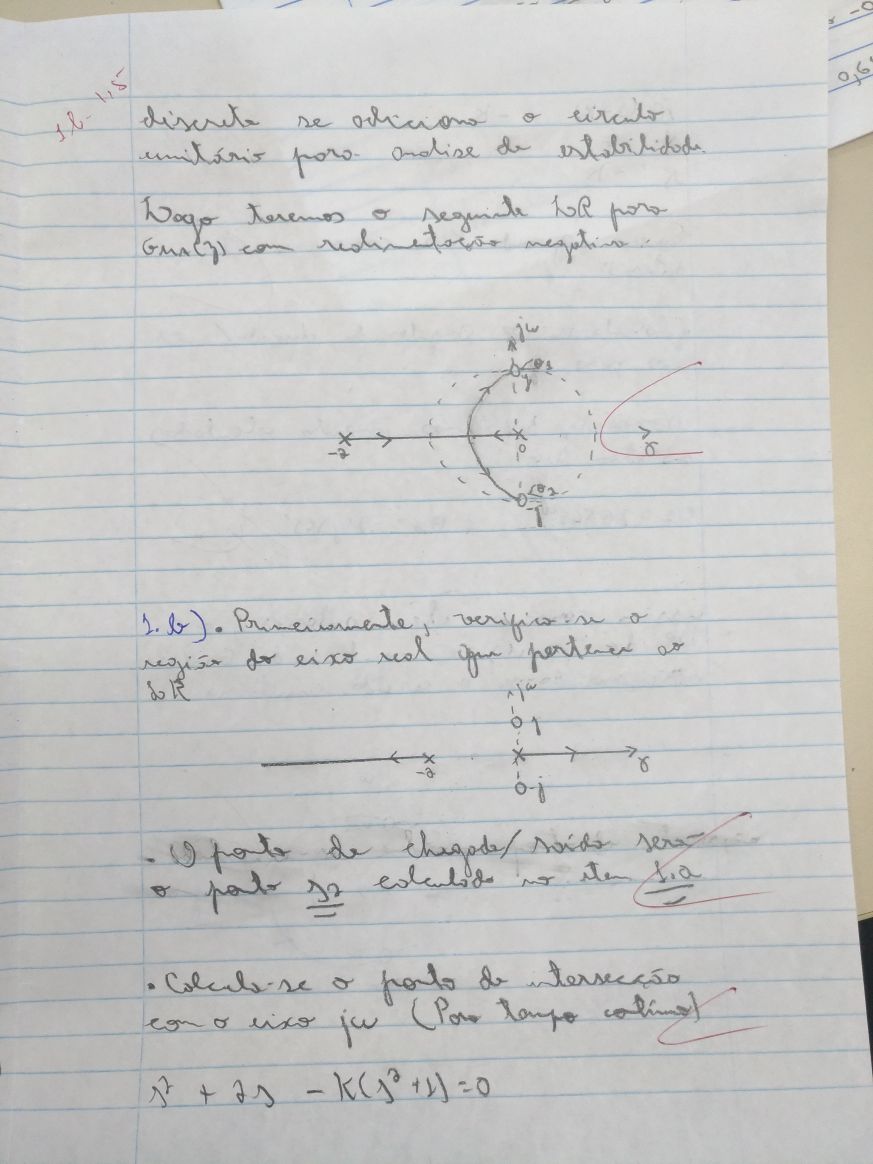 1b - 1,5
discreto se adiciona o circulo
unitário para analise de estabilidade.
Logo teremos o seguinte LR para
GMA(z) com realimentação negativa.
jω
θ1
j
-2
0
σ
θ2
-j
1.b). Primeiramente, verifica-se a
região do eixo real que pertence ao
LR
jω
j
-2
σ
-j
• O ponto de chegada/saída será
o ponto s2 calculado no item 1.a
• Calcula-se o ponto de intersecção
com o eixo jω (Para tempo contínuo)
s² + 2s - K(s²+1) = 0
-0
0,6